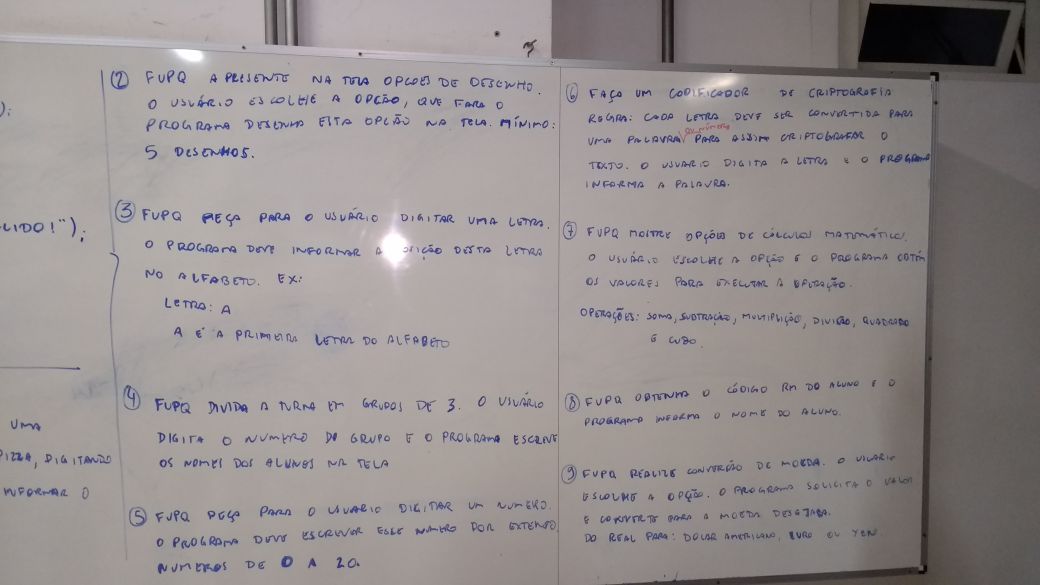 ):
LIDO!");
UMA
PIZZA, DIGITANDO
INFORMAR O
② FUPQ APRESENTE NA TELA OPCOES DE DESENHO.
O USUÁRIO ESCOLHE A OPÇÃO, QUE FARA O
PROGRAMA DESENHA ESTA OPCÃO NA TELA. MÍNIMO:
5 DESENHOS.
③ FUPQ PEÇA PARA O USUÁRIO DIGITAR UMA LETRA.
O PROGRAMA DEVE INFORMAR A POSIÇÃO DESTA LETRA
NO ALFABETO. EX:
LETRA: A
A É A PRIMEIRA LETRA DO ALFABETO
④ FUPQ DIVIDA A TURMA EM GRUPOS DE 3. O USUÁRIO
DIGITA O NUMERO DO GRUPO E O PROGRAMA ESCREVE
OS NOMES DOS ALUNOS NA TELA
⑤ FUPQ PEÇA PARA O USUARIO DIGITAR UM NUMERO.
O PROGRAMA DEVE ESCREVER ESSE NUMERO POR EXTENSO
NUMEROS DE 0 A 20.
⑥ FAÇA UM CODIFICADOR DE CRIPTOGRAFIA
REGRA: CADA LETRA DEVE SER CONVERTIDA PARA
UMA PALAVRA OU NÚMERO PARA ASSIM CRIPTOGRAFAR O
TEXTO. O USUARIO DIGITA A LETRA E O PROGRAMA
INFORMA A PALAVRA.
⑦ FUPQ MOSTRE OPÇÕES DE CÁLCULOS MATEMÁTICO.
O USUÁRIO ESCOLHE A OPÇÃO E O PROGRAMA OBTÉM
OS VALORES PARA EXECUTAR A OPERAÇÃO.
OPERAÇÕES: SOMA, SUBTRAÇÃO, MULTIPLIÇÃO, DIVISÃO, QUADRADO
E CUBO.
⑧ FUPQ OBTENHA O CÓDIGO RM DO ALUNO E O
PROGRAMA INFORMA O NOME DO ALUNO.
⑨ FUPQ REALIZE CONVERSÃO DE MOEDA. O USUARIO
ESCOLHE A OPÇÃO. O PROGRAMA SOLICITA O VALOR
E CONVERTE PARA A MOEDA DESEJADA.
DO REAL PARA: DOLAR AMERICANO, EURO OU YEN